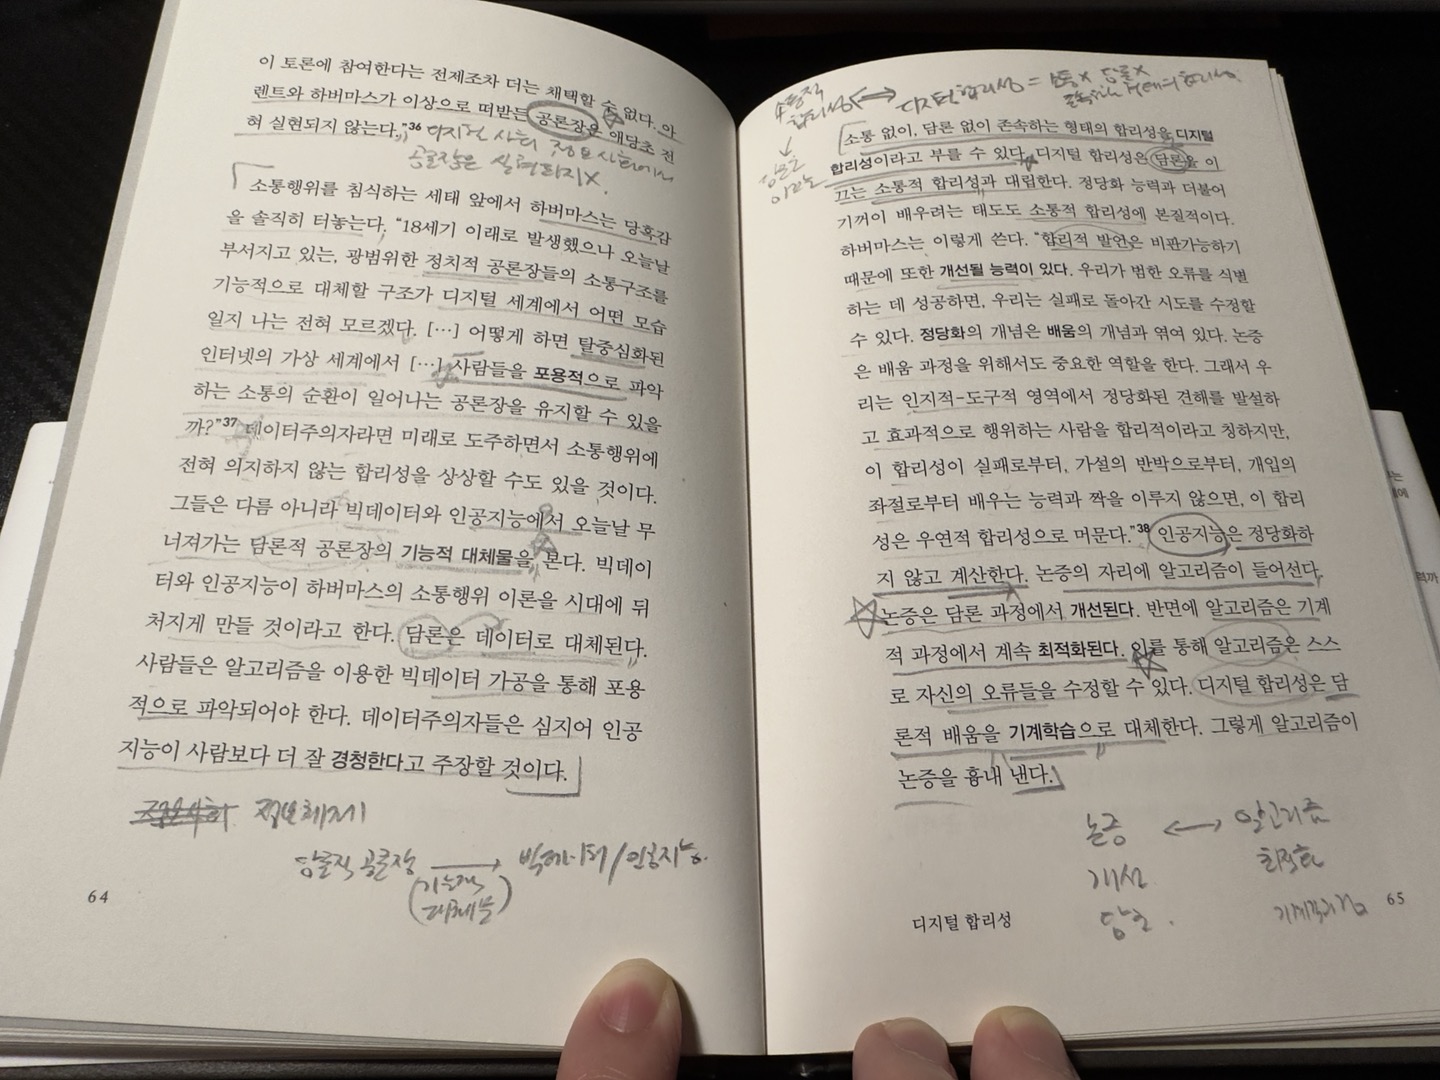 이 토론에 참여한다는 전제조차 더는 채택할 수 없다. 아
렌트와 하버마스가 이상으로 떠받든 공론장은 애당초 전
혀 실현되지 않는다."36 디지털 사회 정보 사회에서
공론장은 실현되지X.
소통행위를 침식하는 세태 앞에서 하버마스는 당혹감
을 솔직히 터놓는다. "18세기 이래로 발생했으나 오늘날
부서지고 있는, 광범위한 정치적 공론장들의 소통구조를
기능적으로 대체할 구조가 디지털 세계에서 어떤 모습
일지 나는 전혀 모르겠다. […] 어떻게 하면 탈중심화된
인터넷의 가상 세계에서 […] 사람들을 포용적으로 파악
하는 소통의 순환이 일어나는 공론장을 유지할 수 있을
까?"37 데이터주의자라면 미래로 도주하면서 소통행위에
전혀 의지하지 않는 합리성을 상상할 수도 있을 것이다.
그들은 다름 아니라 빅데이터와 인공지능에서 오늘날 무
너져가는 담론적 공론장의 기능적 대체물을 본다. 빅데이
터와 인공지능이 하버마스의 소통행위 이론을 시대에 뒤
처지게 만들 것이라고 한다. 담론은 데이터로 대체된다.
사람들은 알고리즘을 이용한 빅데이터 가공을 통해 포용
적으로 파악되어야 한다. 데이터주의자들은 심지어 인공
지능이 사람보다 더 잘 경청한다고 주장할 것이다.
정보체제
담론적 공론장 → 빅데이터/인공지능.
(기능적
대체물)
64
소통적
합리성 ↔ 디지털 합리성 = 소통X 담론X
존속하는 형태의 합리성.
↓
담론을
이끄는
소통 없이, 담론 없이 존속하는 형태의 합리성을 디지털
합리성이라고 부를 수 있다. 디지털 합리성은 담론을 이
끄는 소통적 합리성과 대립한다. 정당화 능력과 더불어
기꺼이 배우려는 태도도 소통적 합리성에 본질적이다.
하버마스는 이렇게 쓴다. "합리적 발언은 비판가능하기
때문에 또한 개선될 능력이 있다. 우리가 범한 오류를 식별
하는 데 성공하면, 우리는 실패로 돌아간 시도를 수정할
수 있다. 정당화의 개념은 배움의 개념과 엮여 있다. 논증
은 배움 과정을 위해서도 중요한 역할을 한다. 그래서 우
리는 인지적-도구적 영역에서 정당화된 견해를 발설하
고 효과적으로 행위하는 사람을 합리적이라고 칭하지만,
이 합리성이 실패로부터, 가설의 반박으로부터, 개입의
좌절로부터 배우는 능력과 짝을 이루지 않으면, 이 합리
성은 우연적 합리성으로 머문다."38 인공지능은 정당화하
지 않고 계산한다. 논증의 자리에 알고리즘이 들어선다.
논증은 담론 과정에서 개선된다. 반면에 알고리즘은 기계
적 과정에서 계속 최적화된다. 이를 통해 알고리즘은 스스
로 자신의 오류들을 수정할 수 있다. 디지털 합리성은 담
론적 배움을 기계학습으로 대체한다. 그렇게 알고리즘이
논증을 흉내 낸다.
논증 ↔ 알고리즘
개선 최적화
담론.
디지털 합리성
65